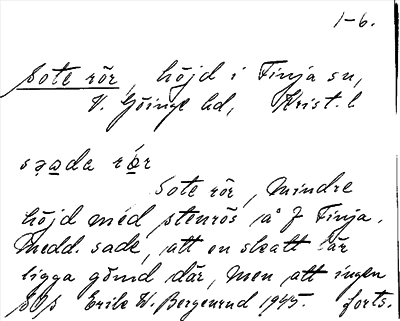 1-6.
Sote rör, höjd i Finja sn,
V. Göinge hd, Krist. l
sạạda rọ́r
Sote rör, mindre
höjd med stenrös å J Finja.
Medd. sade, att en skatt lär
ligga gömd där, men att ingen
Erik W. Bergenrud 1945. forts.